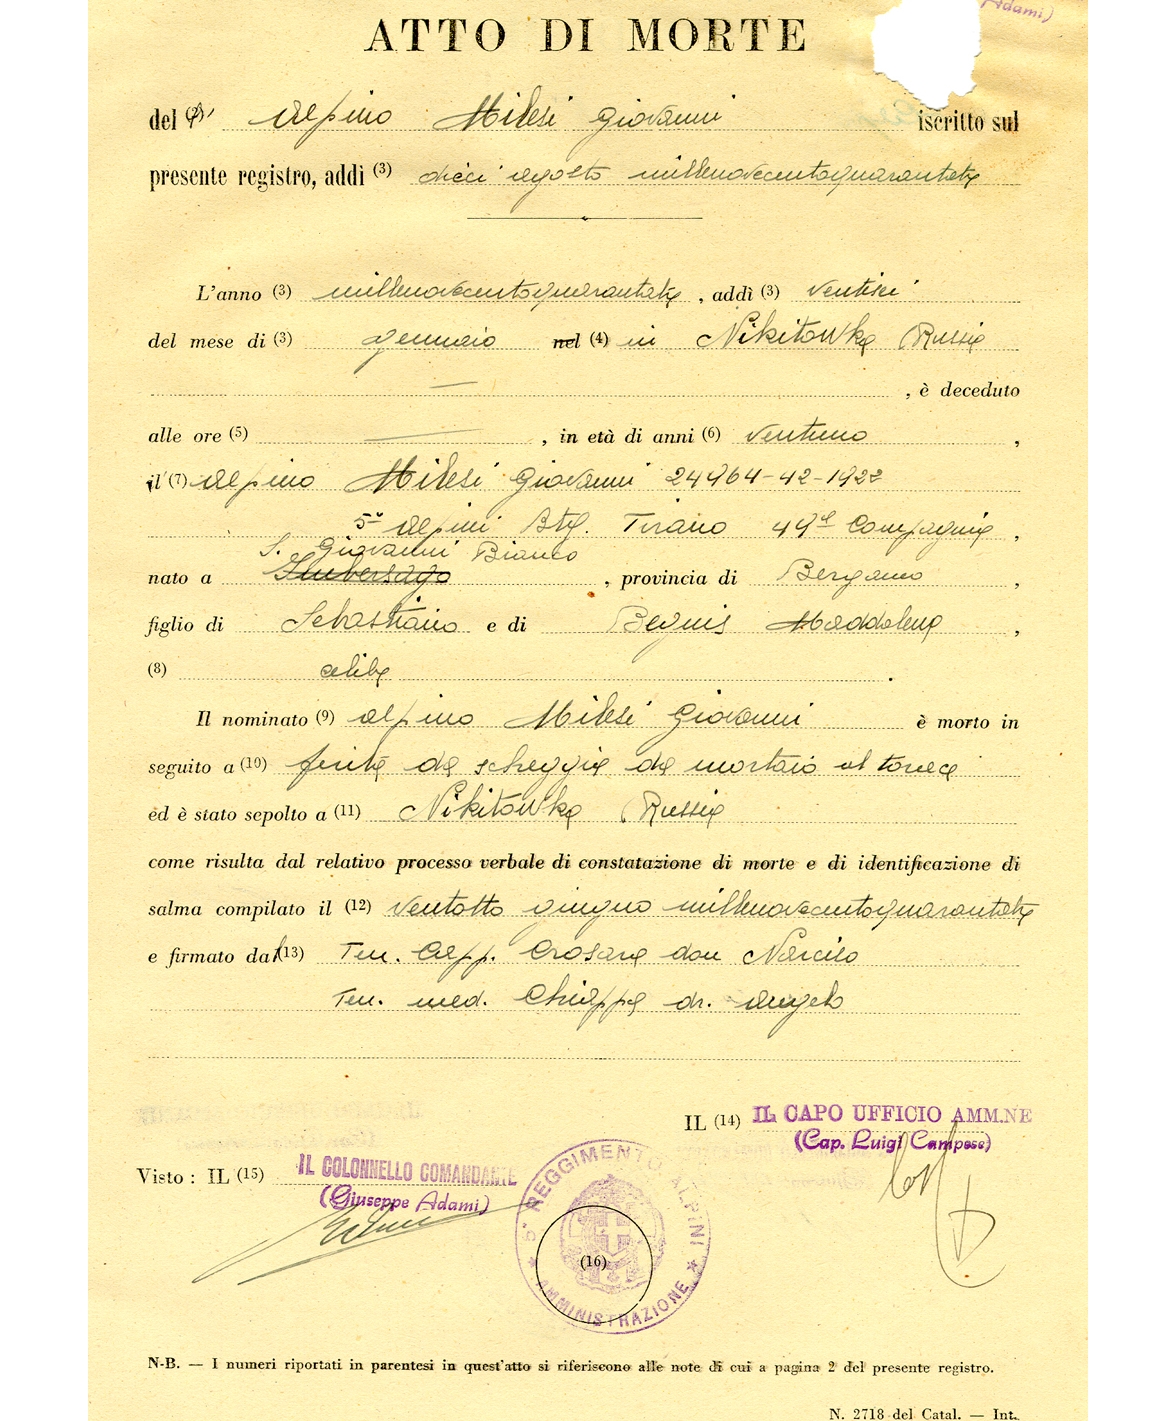 Adami)
ATTO DI MORTE
del (2) Alpino Milesi Giovanni iscritto sul
presente registro, addì (3) dieci agosto millenovecentoquarantatre
L'anno (3) millenovecentoquarantatre , addì (3) ventisei
del mese di (3) gennaio nel (4) in Nikitowka (Russia
, è deceduto
alle ore (5) , in età di anni (6) ventuno ,
il (7) Alpino Milesi Giovanni 24964-42-1922
5° Alpini Btg. Tirano 49ª Compagnia ,
S. Giovanni Bianco
nato a Imbersago , provincia di Bergamo ,
figlio di Sebastiano e di Begnis Maddalena ,
(8) celibe .
Il nominato (9) Alpino Milesi Giovanni è morto in
seguito a (10) ferita da scheggia da mortaio al torace
ed è stato sepolto a (11) Nikitowka (Russia
come risulta dal relativo processo verbale di constatazione di morte e di identificazione di
salma compilato il (12) ventotto giugno millenovecentoquarantatre
e firmato dal (13) Ten. Capp. Crosara don Narciso
Ten. med. Chiappa dr. Angelo
IL (14) IL CAPO UFFICIO AMM.NE
(Cap. Luigi Campese)
Visto : IL (15) IL COLONNELLO COMANDANTE
(Giuseppe Adami)
5° REGGIMENTO ALPINI
★ AMMINISTRAZIONE ★
(16)
N-B. — I numeri riportati in parentesi in quest'atto si riferiscono alle note di cui a pagina 2 del presente registro.
N. 2718 del Catal. — Int.